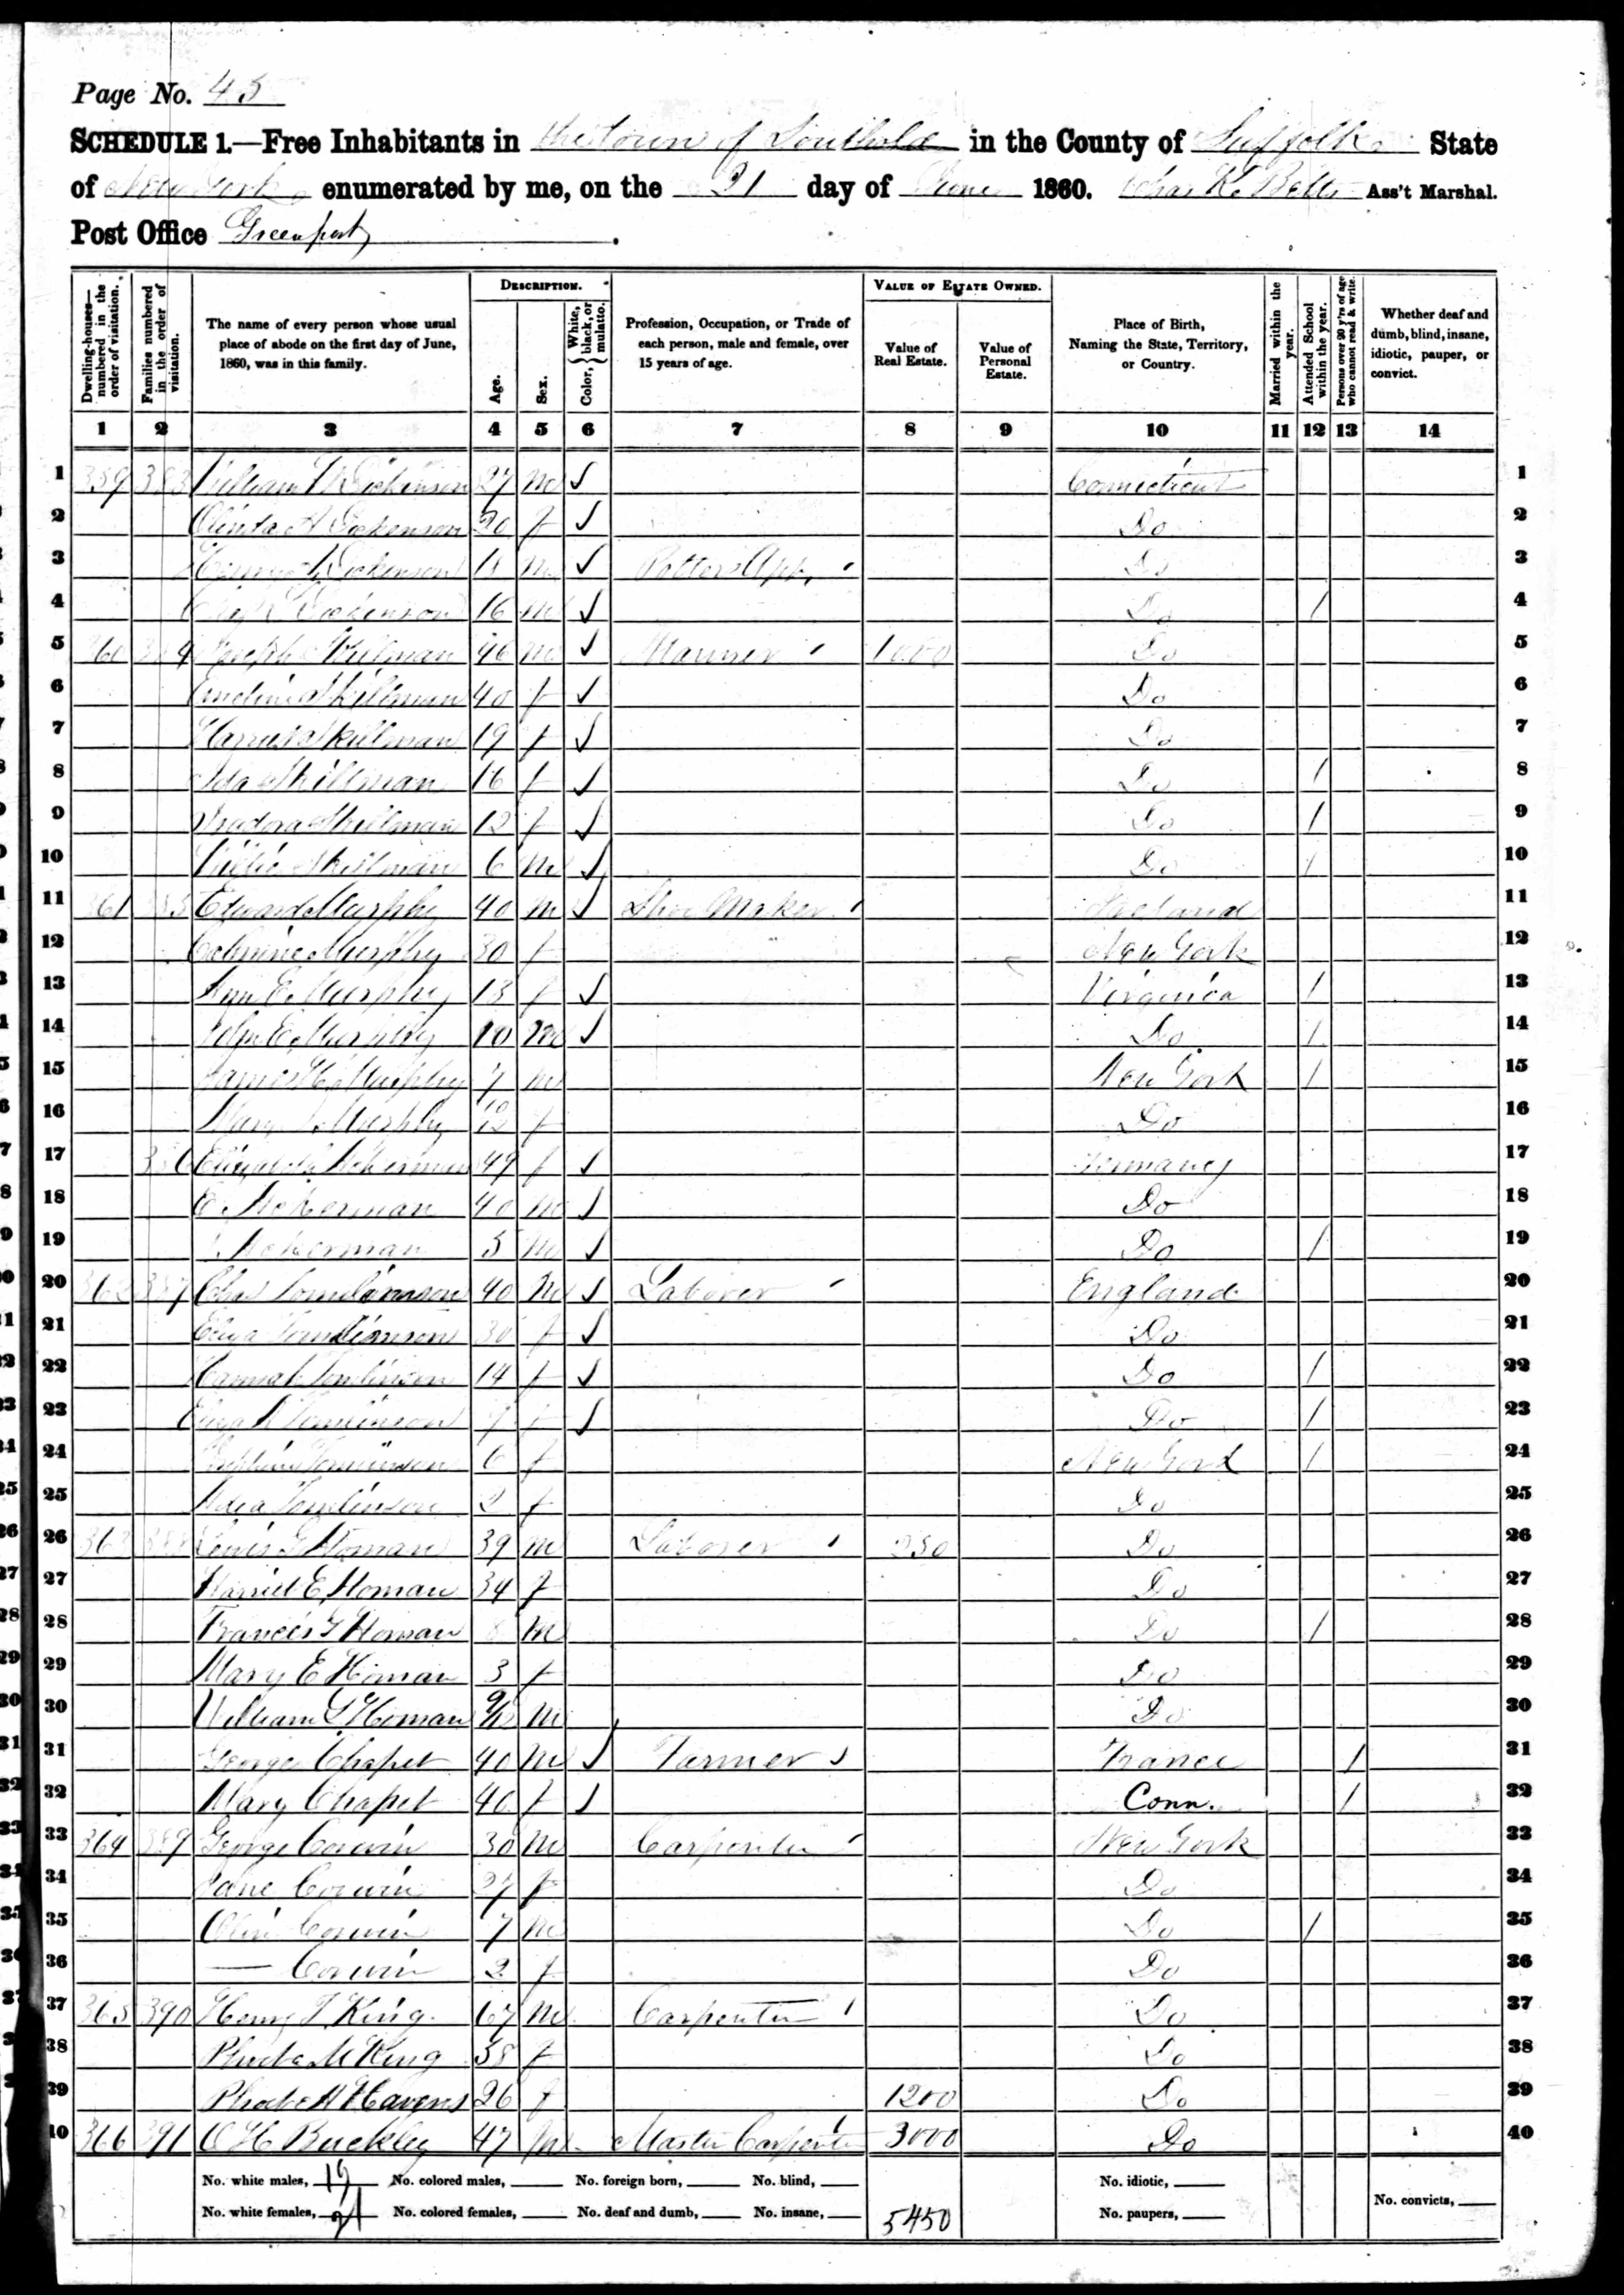 Page No. 45
SCHEDULE 1.—Free Inhabitants in the Town of Southold in the County of Suffolk State
of New York enumerated by me, on the 21 day of June 1860. Chas K. Betts Ass't Marshal.
Post Office Greenport
Dwelling-houses—numbered in the order of visitation.
Families numbered in the order of visitation.
The name of every person whose usual place of abode on the first day of June, 1860, was in this family.
DESCRIPTION.
Age.
Sex.
Color, { White, black, or mulatto.
Profession, Occupation, or Trade of each person, male and female, over 15 years of age.
VALUE OF ESTATE OWNED.
Value of Real Estate.
Value of Personal Estate.
Place of Birth, Naming the State, Territory, or Country.
Married within the year.
Attended School within the year.
Persons over 20 y'rs of age who cannot read & write.
Whether deaf and dumb, blind, insane, idiotic, pauper, or convict.
1 2 3 4 5 6 7 8 9 10 11 12 13 14
1 359 383 William Dickenson 27 m ✓ Connecticut 1
2 A Dickenson 20 f ✓ Do 2
3 Henry Dickenson 18 m ✓ Potters App. Do 3
4 Dickenson 16 m ✓ Do / 4
5 360 384 Joseph Skillman 46 m ✓ Mariner 1000 Do 5
6 Emeline Skillman 40 f ✓ Do 6
7 Harriet Skillman 19 f ✓ Do 7
8 Ida Skillman 16 f ✓ Do / 8
9 Isadora Skillman 12 f ✓ Do / 9
10 Willie Skillman 6 m ✓ Do / 10
11 361 385 Edward Murphy 40 m ✓ Shoe Maker Ireland 11
12 Murphy 30 f New York 12
13 Ann E. Murphy 13 f ✓ Virginia / 13
14 John E. Murphy 10 m ✓ Do / 14
15 James H. Murphy 7 m New York / 15
16 Mary Murphy f Do 16
17 386 Elizabeth Ackerman 49 f ✓ Germany 17
18 E. Ackerman 40 m ✓ Do 18
19 Ackerman 5 m ✓ Do / 19
20 362 387 Chas Tomlinson 40 m ✓ Laborer England 20
21 Eliza Tomlinson 30 f ✓ Do 21
22 Hannah Tomlinson 14 f ✓ Do / 22
23 Eliza A Tomlinson 7 f ✓ Do / 23
24 Tomlinson 6 f New York / 24
25 Tomlinson 2 f Do 25
26 363 388 Lewis G Homan 39 m Laborer 250 Do 26
27 Harriet E Homan 34 f Do 27
28 Francis G Homan 8 m Do / 28
29 Mary E Homan 3 f Do 29
30 William G Homan 9/12 m Do 30
31 George Chapet 40 m ✓ Farmer France / 31
32 Mary Chapet 40 f ✓ Conn. / 32
33 364 389 George Corwin 30 m Carpenter New York 33
34 Jane Corwin 27 f Do 34
35 Corwin 7 m Do / 35
36 — Corwin 2 f Do 36
37 365 390 Henry T. King 67 m Carpenter Do 37
38 Phebe M King 58 f Do 38
39 Phebe H Havens 26 f 1200 Do 39
40 366 391 O H Buckley 47 m Master Carpenter 3000 Do 40
No. white males, 19 No. colored males, No. foreign born, No. blind, No. idiotic,
No. white females, 21 No. colored females, No. deaf and dumb, No. insane, 5450 No. paupers, No. convicts,